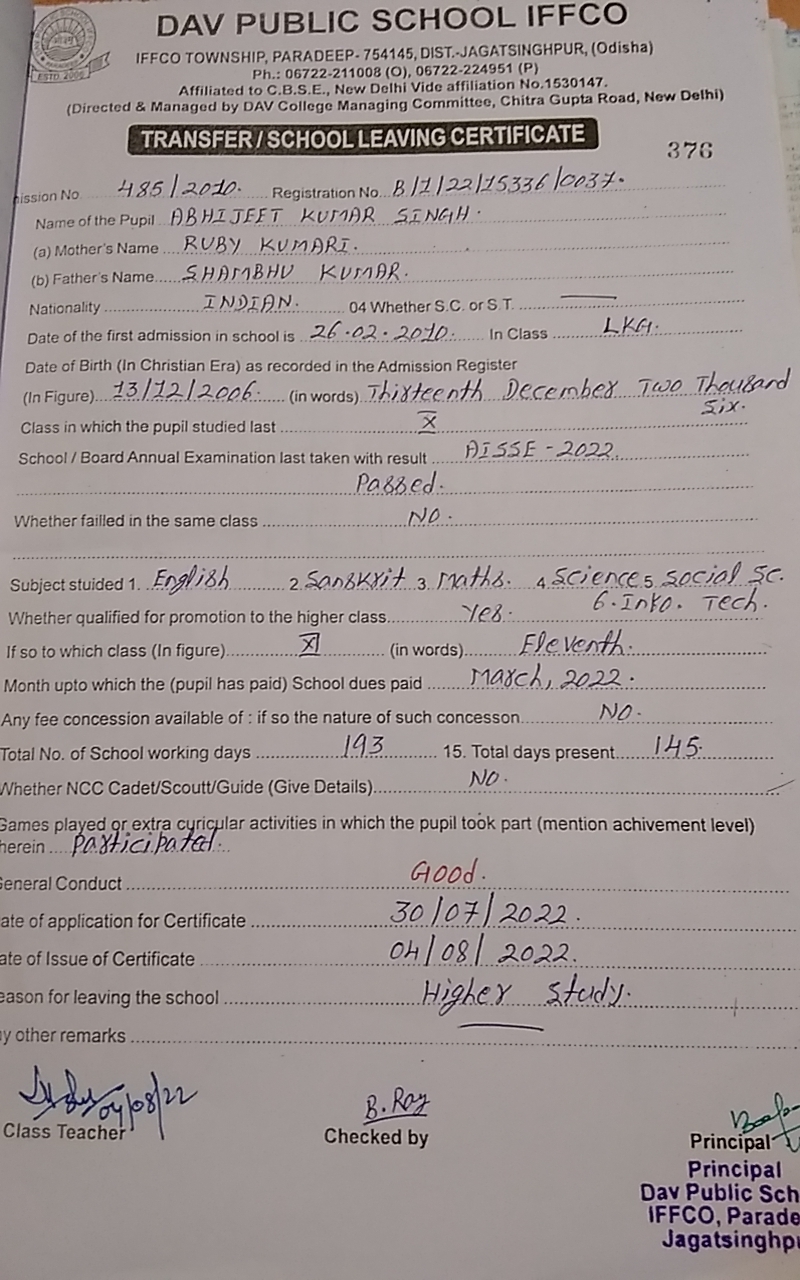 DAV PUBLIC SCHOOL IFFCO
IFFCO TOWNSHIP, PARADEEP- 754145, DIST.-JAGATSINGHPUR, (Odisha)
Ph.: 06722-211008 (O), 06722-224951 (P)
Affiliated to C.B.S.E., New Delhi Vide affiliation No.1530147.
(Directed & Managed by DAV College Managing Committee, Chitra Gupta Road, New Delhi)
ESTD. 2006
TRANSFER / SCHOOL LEAVING CERTIFICATE
376
ission No 485/2010. Registration No. B/1/22/15336/0037.
Name of the Pupil ABHIJEET KUMAR SINGH.
(a) Mother's Name RUBY KUMARI.
(b) Father's Name SHAMBHU KUMAR.
Nationality INDIAN. 04 Whether S.C. or S.T. —
Date of the first admission in school is 26.02.2010. In Class LKG.
Date of Birth (In Christian Era) as recorded in the Admission Register
(In Figure) 13/12/2006. (in words) Thirteenth December Two Thousand
Six.
Class in which the pupil studied last X
School / Board Annual Examination last taken with result AISSE - 2022.
Passed.
Whether failled in the same class NO.
Subject stuided 1. English 2. Sanskrit 3. Maths. 4. Science 5. Social Sc.
6. Info. Tech.
Whether qualified for promotion to the higher class Yes.
If so to which class (In figure) XI (in words) Eleventh.
Month upto which the (pupil has paid) School dues paid March, 2022.
Any fee concession available of : if so the nature of such concesson NO.
Total No. of School working days 193 15. Total days present 145.
Whether NCC Cadet/Scoutt/Guide (Give Details) NO.
Games played or extra cyricular activities in which the pupil took part (mention achivement level)
herein Participated.
General Conduct Good.
ate of application for Certificate 30/07/2022.
ate of Issue of Certificate 04/08/2022.
eason for leaving the school Higher Study.
y other remarks —
04/08/22
Class Teacher
B. Roy
Checked by
Principal
Principal
Dav Public Sch
IFFCO, Parade
Jagatsinghpu